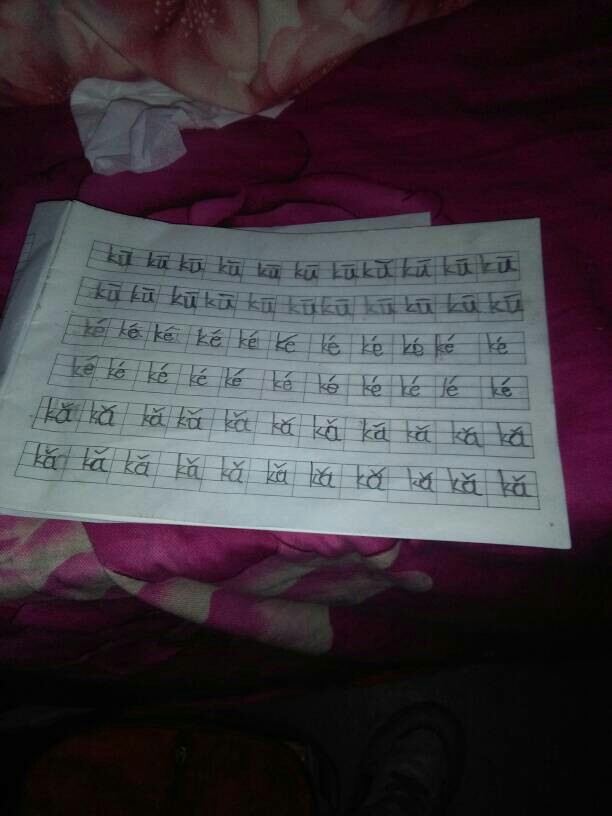 kū kū kū kū kū kū kū kǔ kū kū kū
kū kū kū kū kū kū kū kū kū kū kū
ké ké ké ké ké ké ké ké ké ké ké
ké ké ké ké ké ké ké ké ké lé ké
kǎ kǎ kǎ kǎ kǎ kǎ kǎ kǎ kǎ kǎ kǎ
kǎ kǎ kǎ kǎ kǎ kǎ kǎ kǎ kǎ kǎ kǎ